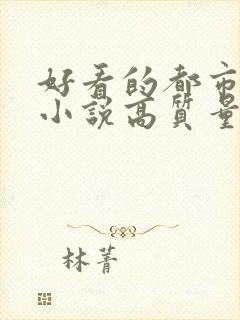 好看的都市
小说高质量
林菁